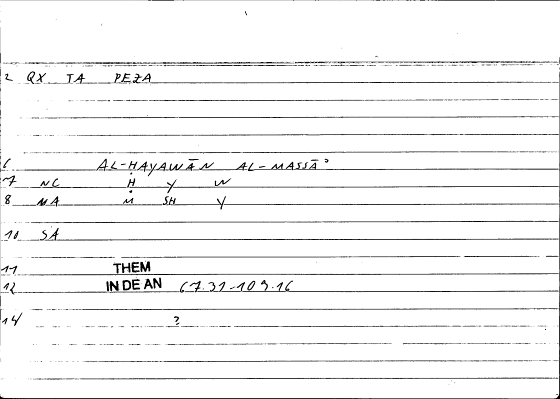 2 QX TA PEZA
6 AL-ḤAYAWĀN AL-MAŠŠĀʾ
7 NC Ḥ Y W
8 NA M SH Y
10 SA
11 THEM
12 IN DE AN 67.31-109.16
14 ?